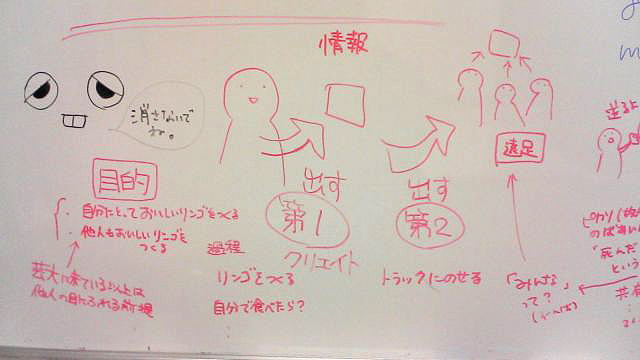 情報
消さないで
ね。
目的
・自分にとっておいしいリンゴをつくる
・他人もおいしいリンゴを
つくる
芸大に来ている以上は
他人の目に入れる前提
出す
第1
クリエイト
過程
リンゴをつくる
自分で食べたら?
出す
第2
トラックにのせる
遠足
「みんな」
って?
送るよ
「死んだ
という